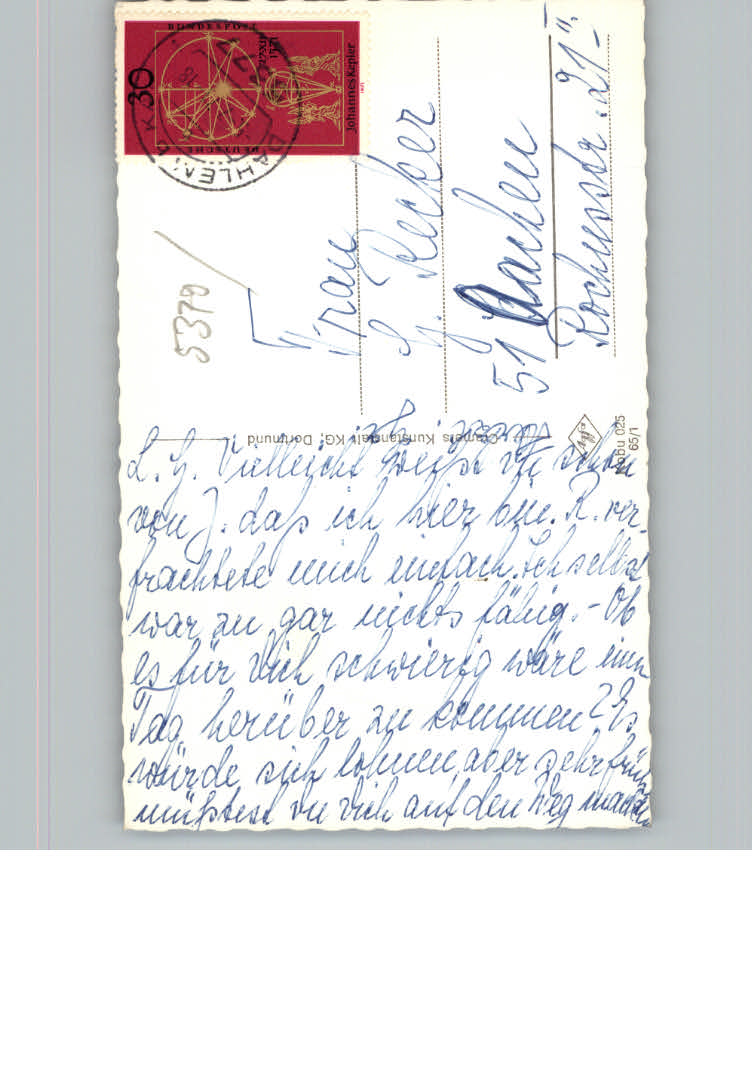 L. G. Vielleicht weißt du schon
von J. daß ich hier bin. R. ver-
frachtete mich einfach. Ich selbst
war zu gar nichts fähig. - Ob
es für dich schwierig wäre einen
Tag herüber zu kommen? Es
würde sich lohnen, aber sehr früh
müßtest du dich auf den Weg machen
Cramers Kunstanstalt KG, Dortmund
Agfa
025
65/1
5370
Frau
G. Recker
51 Aachen
Rochusstr. 21
DEUTSCHE BUNDESPOST
30
Johannes Kepler
27.XII.
1571
1971
DAHLEM